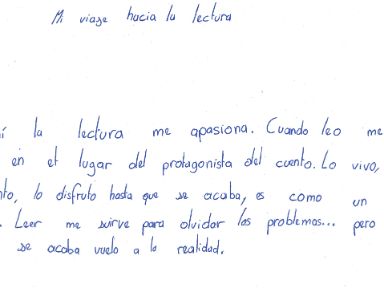 Mi viaje hacia la lectura
í la lectura me apasiona. Cuando leo me
en el lugar del protagonista del cuento. Lo vivo,
nto, lo disfruto hasta que se acaba, es como un
. Leer me sirve para olvidar los problemas... pero
se acaba vuelo a la realidad.